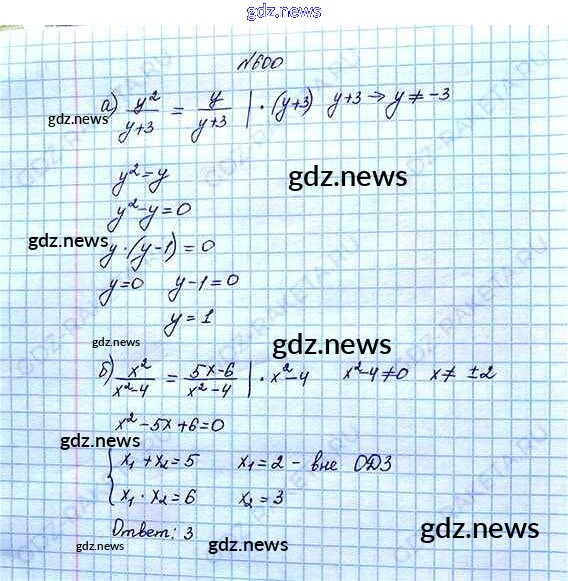 gdz.news
№600
а) y²/(y+3) = y/(y+3) | · (y+3) y+3 → y ≠ -3
gdz.news
y² = y
gdz.news
y² - y = 0
gdz.news
y · (y - 1) = 0
y = 0 y - 1 = 0
y = 1
gdz.news
gdz.news
б) x²/(x²-4) = (5x-6)/(x²-4) | · x²-4 x²-4≠0 x ≠ ±2
x² - 5x + 6 = 0
gdz.news
{ x₁ + x₂ = 5 x₁ = 2 - вне ОДЗ
x₁ · x₂ = 6 x₂ = 3
Ответ: 3
gdz.news
gdz.news
gdz.news
GDZ-RAKETA.RU